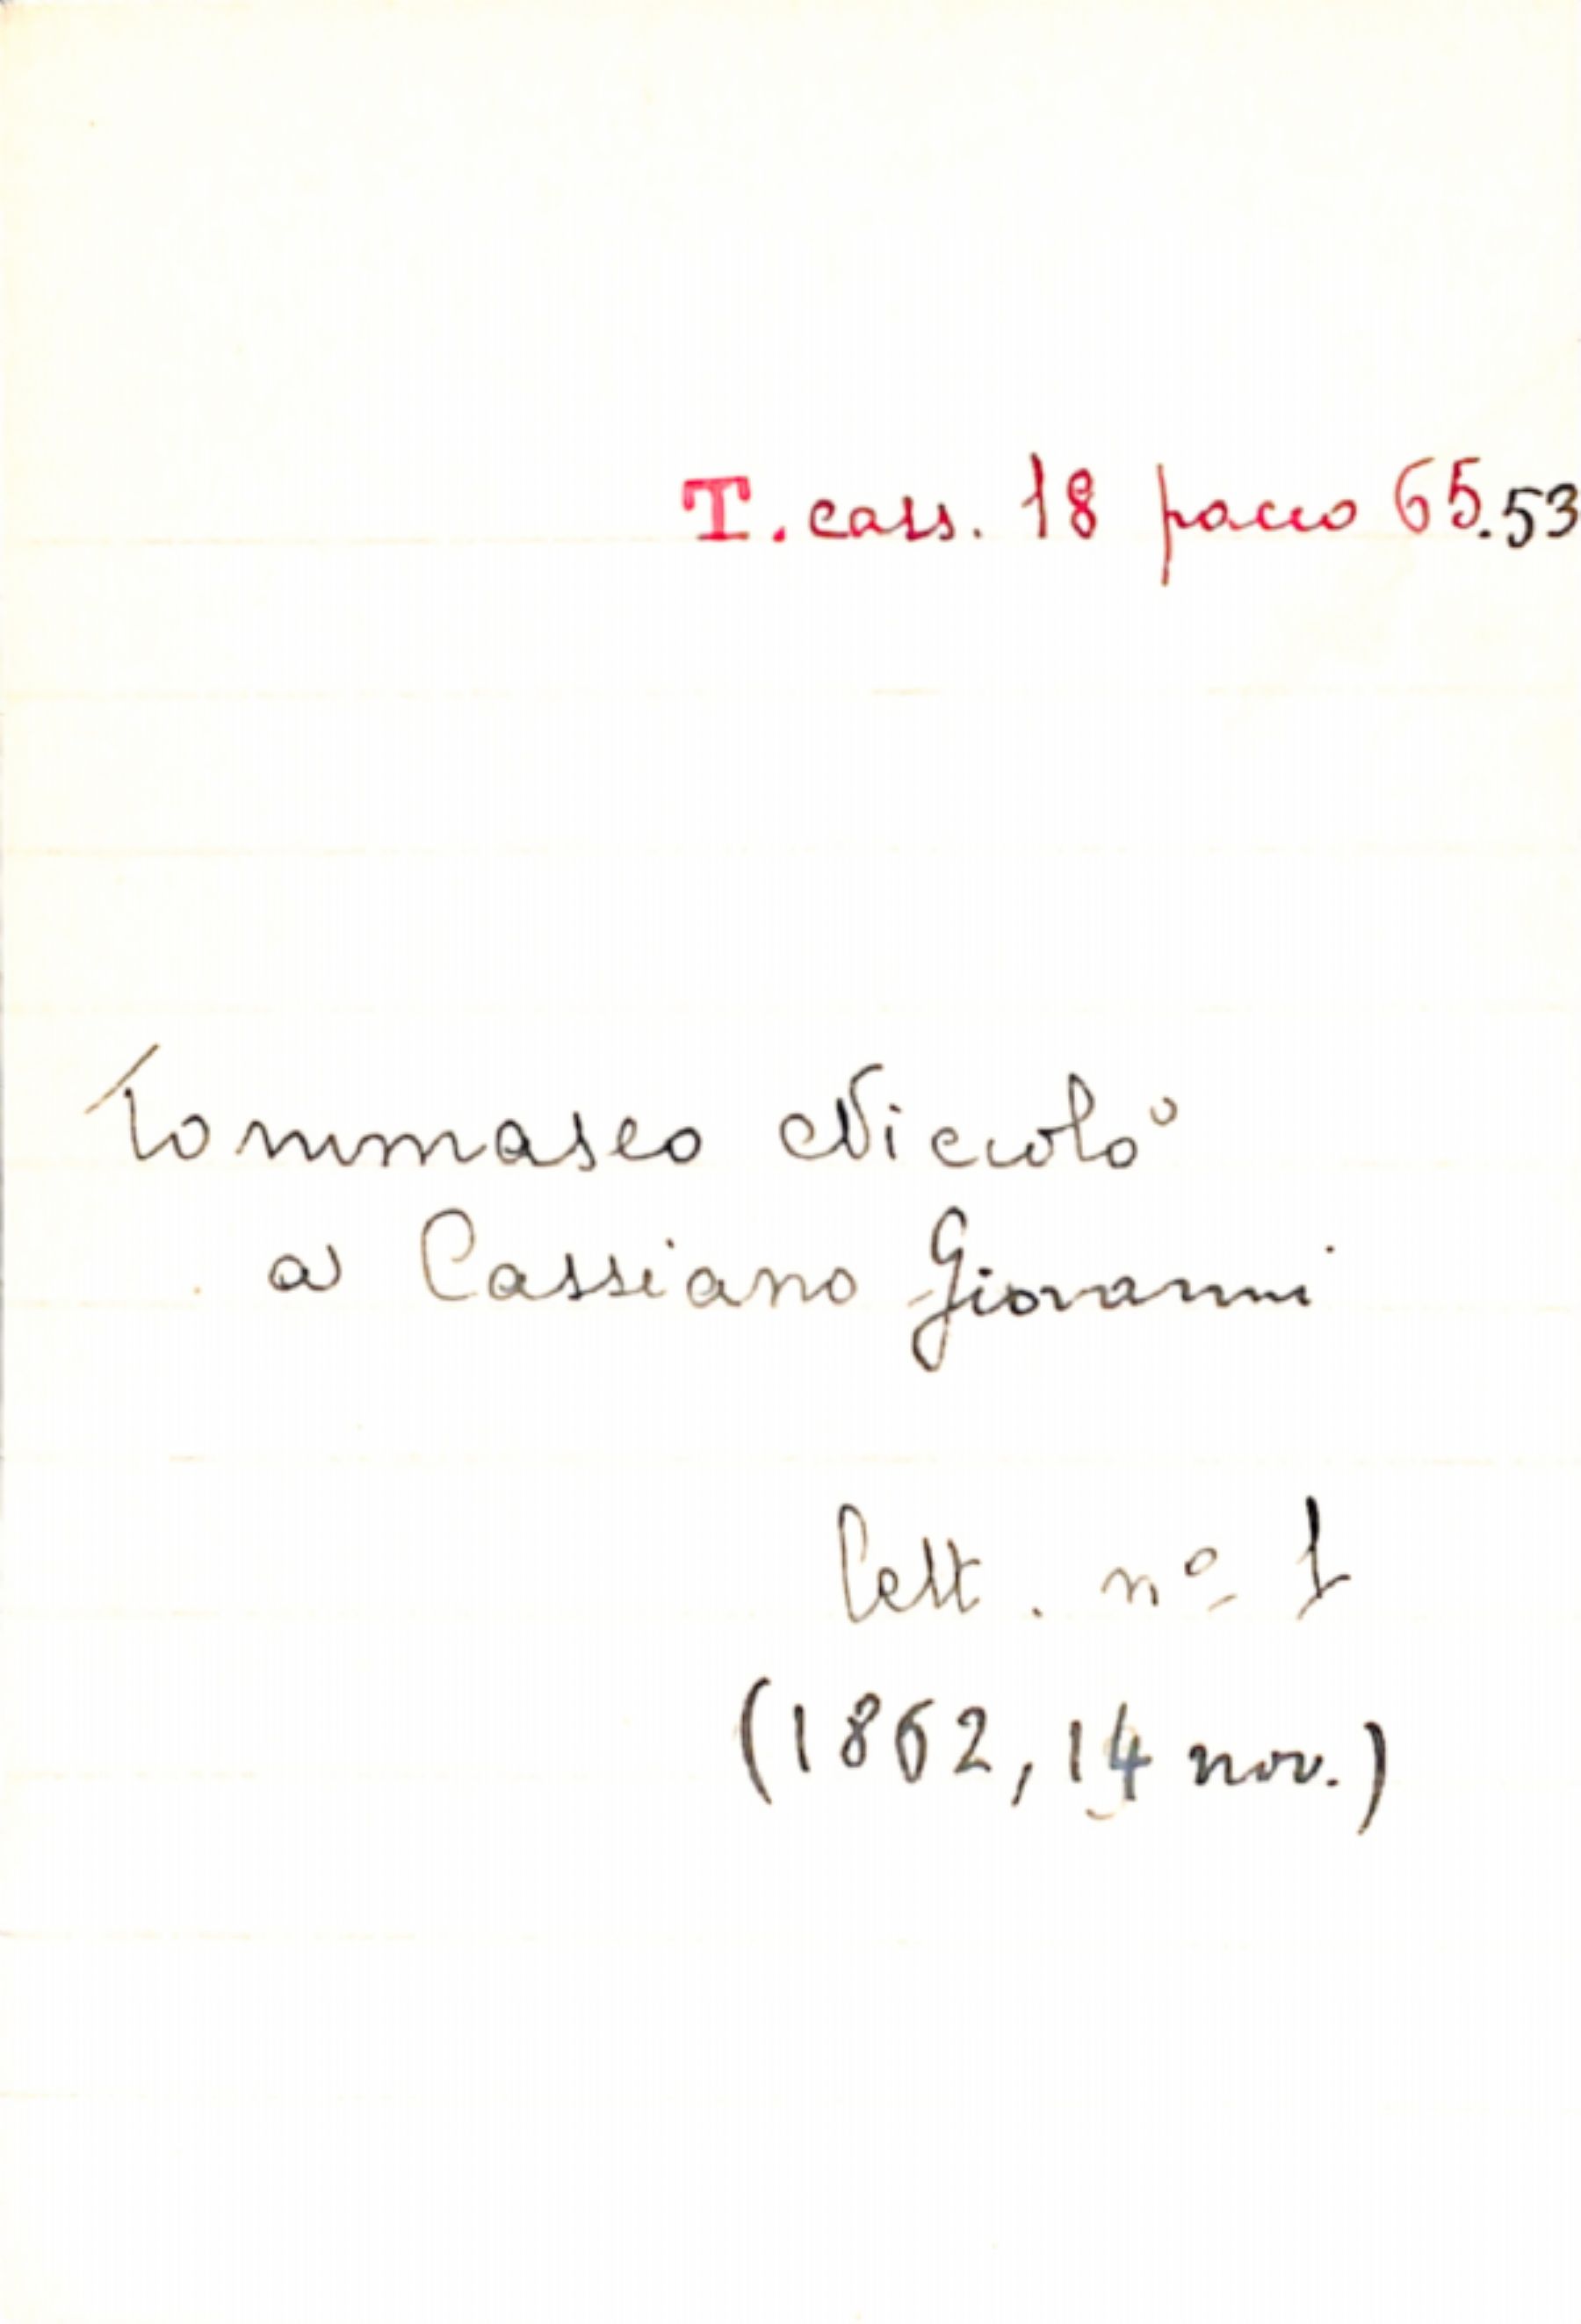 T. cass. 18 pacco 65.53
Tommaseo Niccolò
a Cassiano Giovanni
lett. nº 1
(1862, 14 nov.)